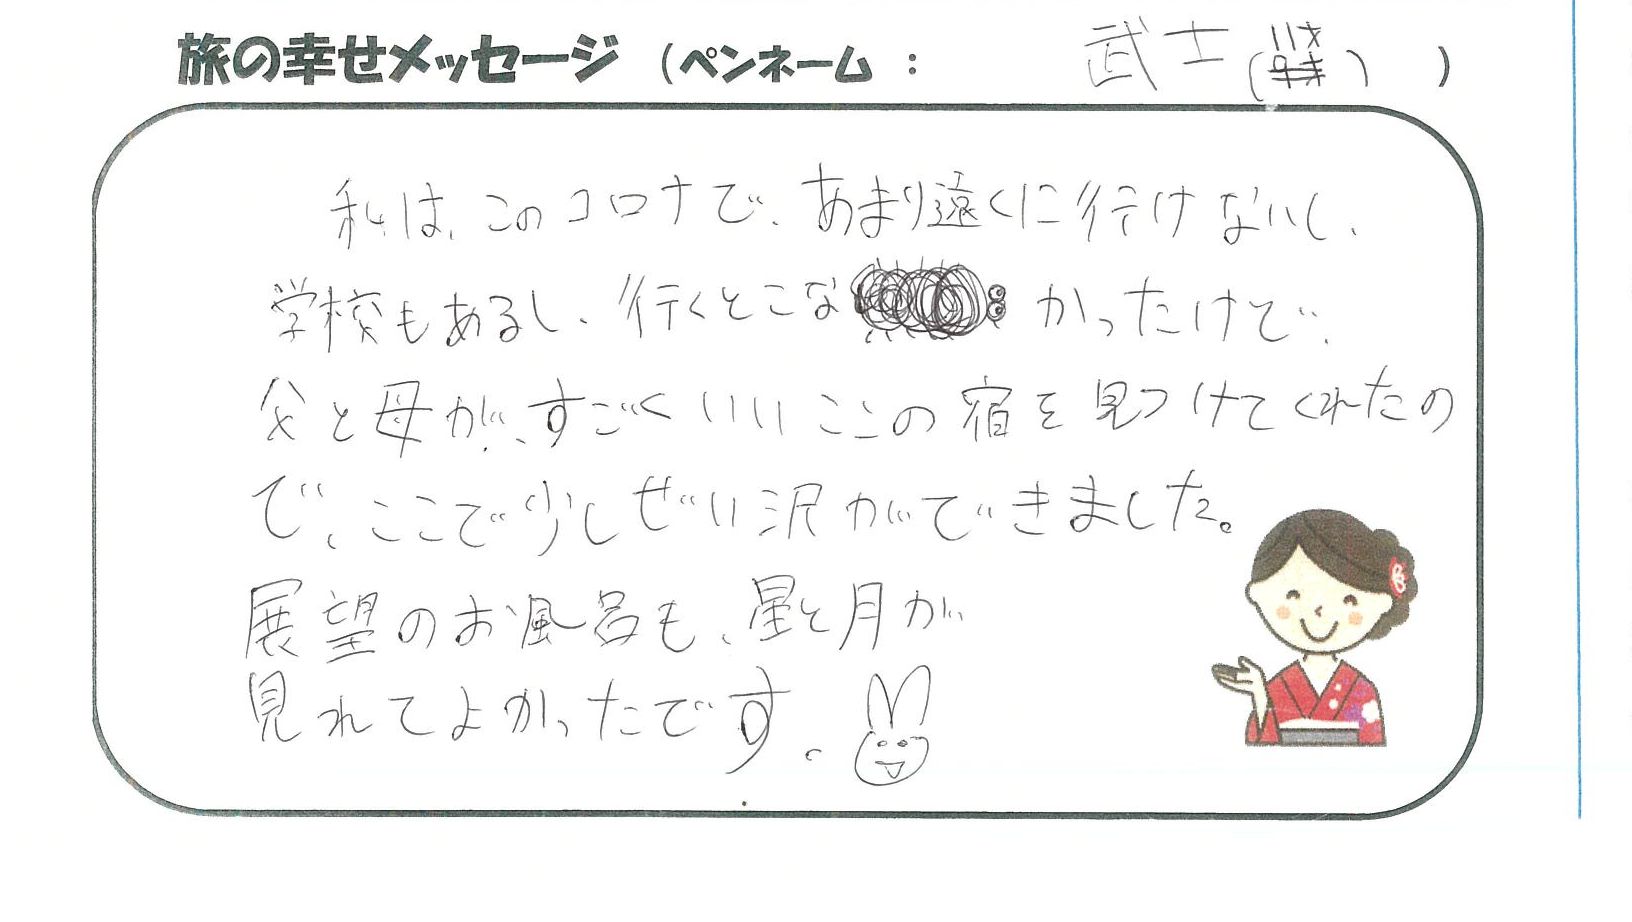 旅の幸せメッセージ (ペンネーム : 武士( ) )
私は、このコロナで、あまり遠くに行けないし、
学校もあるし、行くとこな かったけど、
父と母が、すごくいいここの宿を見つけてくれたの
で、ここで少しぜいい沢ができました。
展望のお風呂も、星と月が
見れてよかったです。